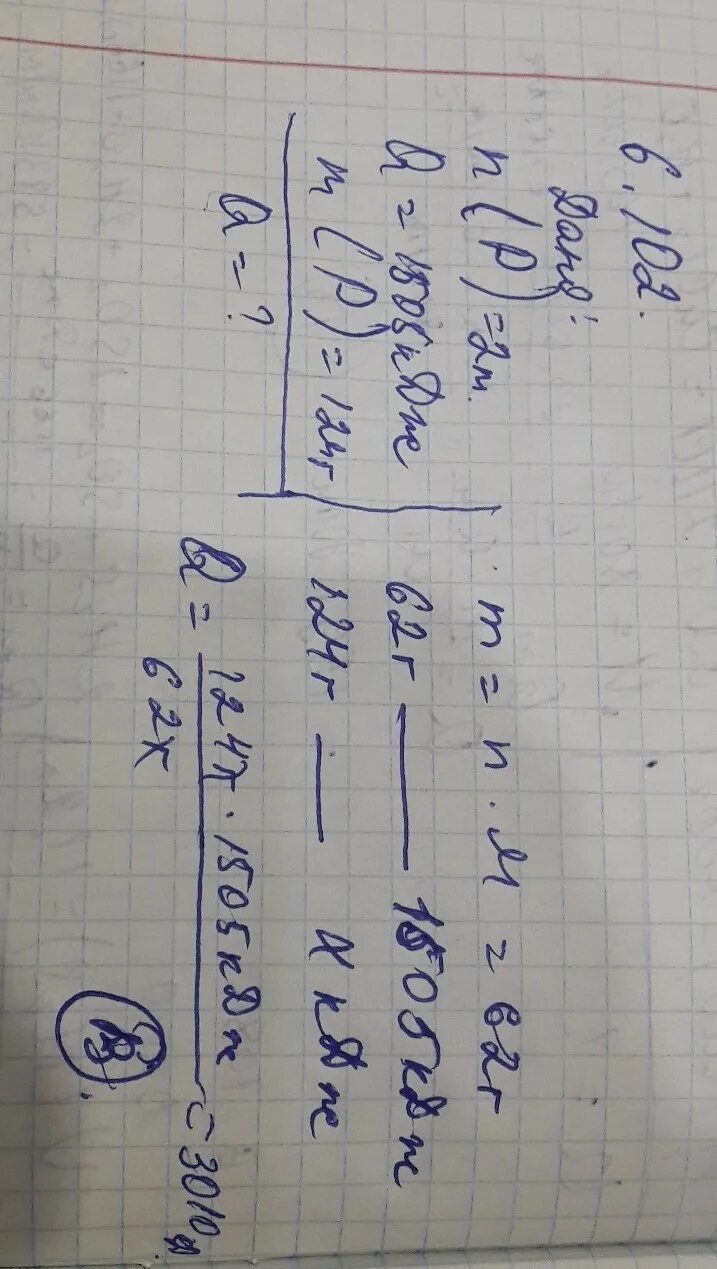 6.102.
Дано:
n(P)=2m.
Q=1505кДж
m(P)=124г
Q=?
m=n.M=62г
62г — 1505кДж
124г — X кДж
Q= 124г.1505кДж
62г
=3010